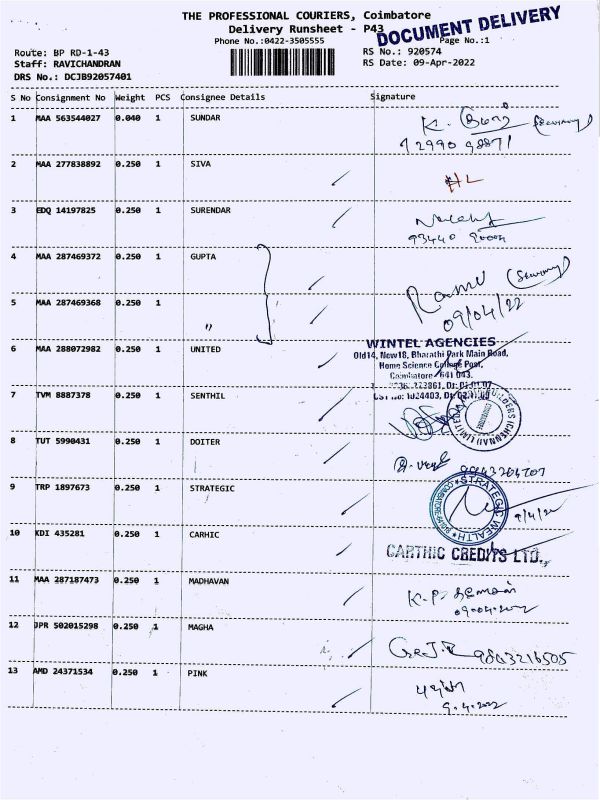 THE PROFESSIONAL COURIERS, Coimbatore
Delivery Runsheet - P43
DOCUMENT DELIVERY
Phone No.:0422-3505555
Page No.:1
Route: BP RD-1-43
RS No.: 920574
Staff: RAVICHANDRAN
RS Date: 09-Apr-2022
DRS No.: DCJB92057401
S No Consignment No Weight PCS Consignee Details Signature
1 MAA 563544027 0.040 1 SUNDAR
72990 98871
2 MAA 277838892 0.250 1 SIVA
3 EDQ 14197825 0.250 1 SURENDAR
93440
4 MAA 287469372 0.250 1 GUPTA
Ramu
09/04/22
5 MAA 287469368 0.250 1 "
WINTEL AGENCIES
Old14, New18, Bharathi Park Main Road,
Home Science College Post,
Coimbatore 641 043.
6 MAA 288072982 0.250 1 UNITED
7 TVM 8887378 0.250 1 SENTHIL
8 TUT 5990431 0.250 1 DOITER
9 TRP 1897673 0.250 1 STRATEGIC
STRATEGIC WEALTH
9/4/22
10 KDI 435281 0.250 1 CARHIC
CARTHIC CREDITS LTD.,
11 MAA 287187473 0.250 1 MADHAVAN
12 JPR 502015298 0.250 1 MAGHA
9843216505
13 AMD 24371534 0.250 1 PINK
9.4.2022